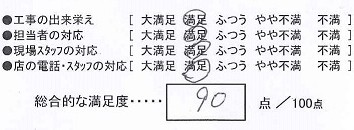 ●工事の出来栄え [ 大満足 満足 ふつう やや不満 不満 ]
●担当者の対応 [ 大満足 満足 ふつう やや不満 不満 ]
●現場スタッフの対応 [ 大満足 満足 ふつう やや不満 不満 ]
●店の電話・スタッフの対応 [ 大満足 満足 ふつう やや不満 不満 ]
総合的な満足度・・・・・ 90 点 /100点